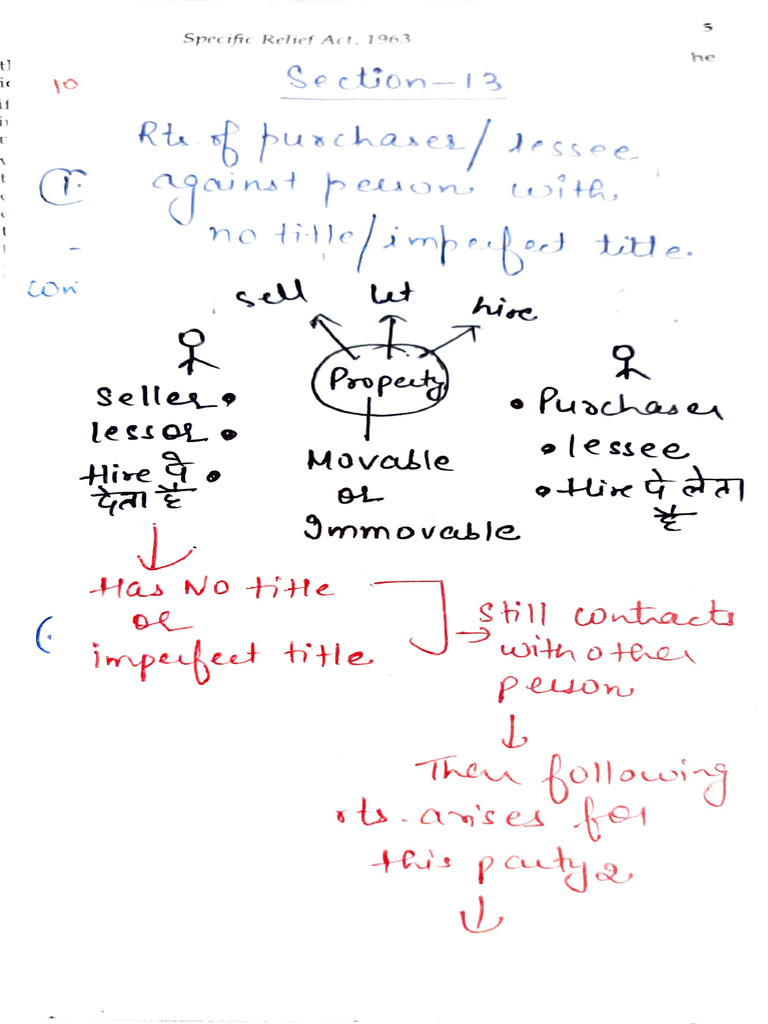 Specific Relief Act, 1963
5
he
10
Section-13
Rts. of purchaser/lessee
against person with
no title/imperfect title.
con
sell let hire
Property
Seller
lessor
Hire पे
देता है
Movable
or
Immovable
Purchaser
lessee
Hire पे लेता
है
Has No title
or
imperfect title
Still contracts
with other
person
Then following
rts. arises for
this party 2